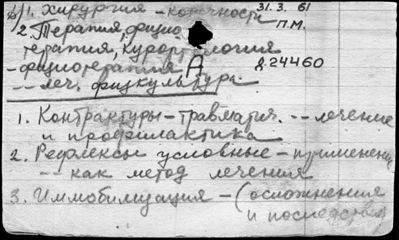 1. Хирургия - конечности 31. 3. 61
П.М.
2. Терапия, физио
терапия, курортология
- физиотерапия А д.24460
-- леч. физкультура.
1. Контрактуры - травматич. -- лечение
и профилактика
2. Рефлексы условные - применение
-- как метод лечения
3. Иммобилизация - (осложнения
и последствия